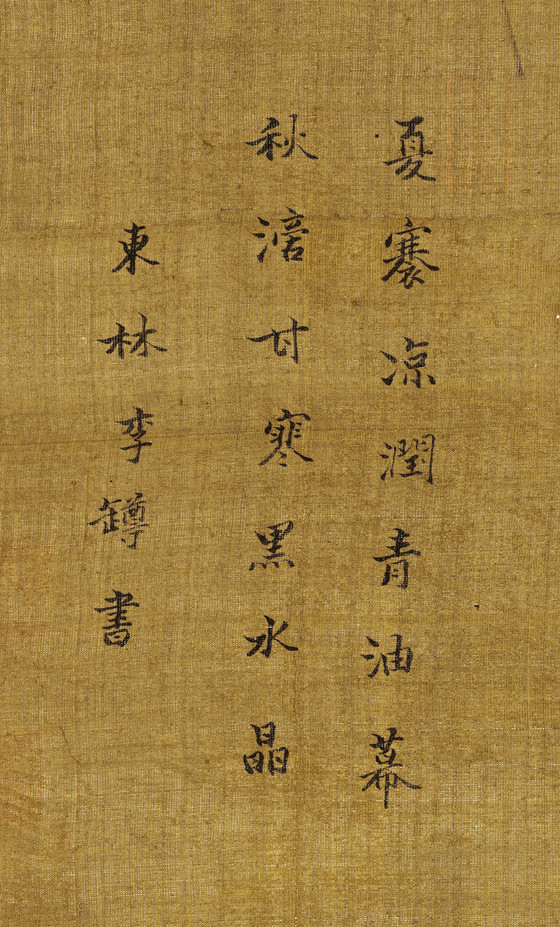 夏褰凉潤青油幕
秋涪甘寒黑水晶
東林李罇書